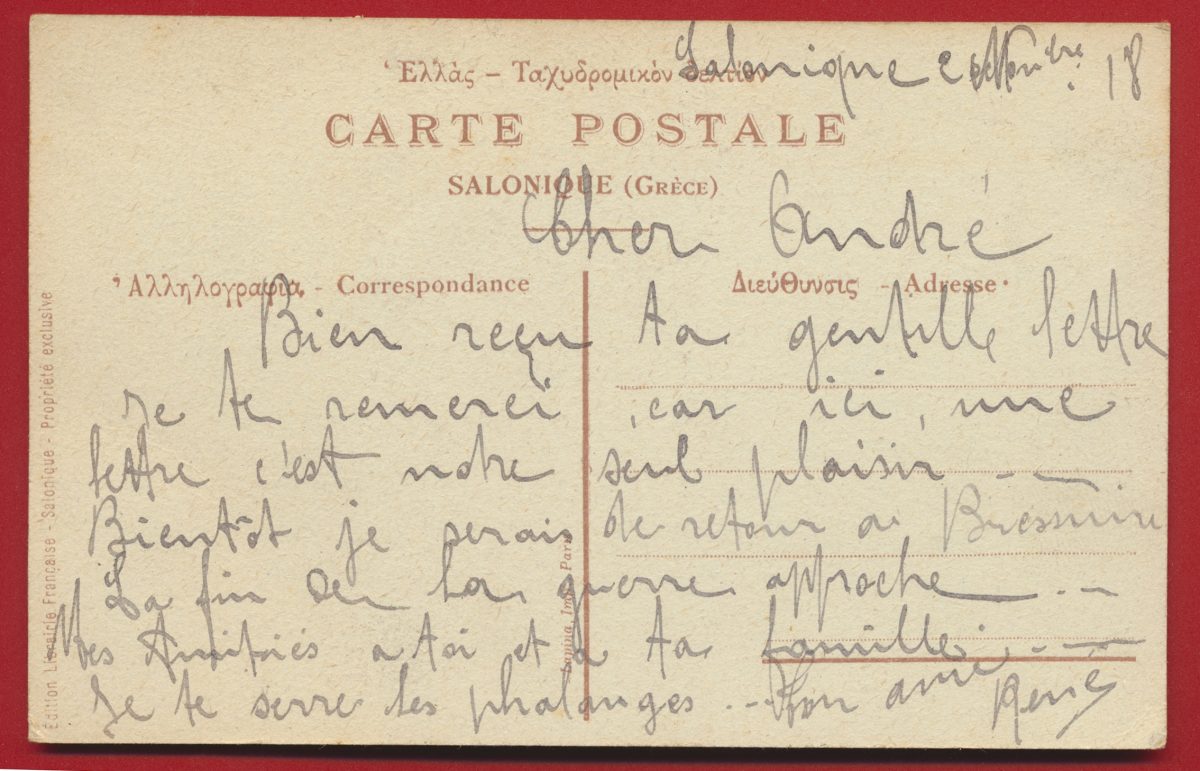 Ἑλλὰς – Ταχυδρομικὸν δελτίον
Salonique 2 Novbre 18
CARTE POSTALE
SALONIQUE (GRÈCE)
Cher André
Ἀλληλογραφία - Correspondance
Διεύθυνσις - Adresse
Bien reçu ta gentille lettre
Je te remercï, car ici, une
lettre c'est notre seul plaisir ---
Bientôt je serais de retour a Bressuire
La fin de la guerre approche ---
Mes Amitiés a toi et à ta famille ---
Je te serre les phalanges --- Ton ami René
Edition Librairie Française - Salonique - Propriété exclusive
Lapina, Imp. Paris